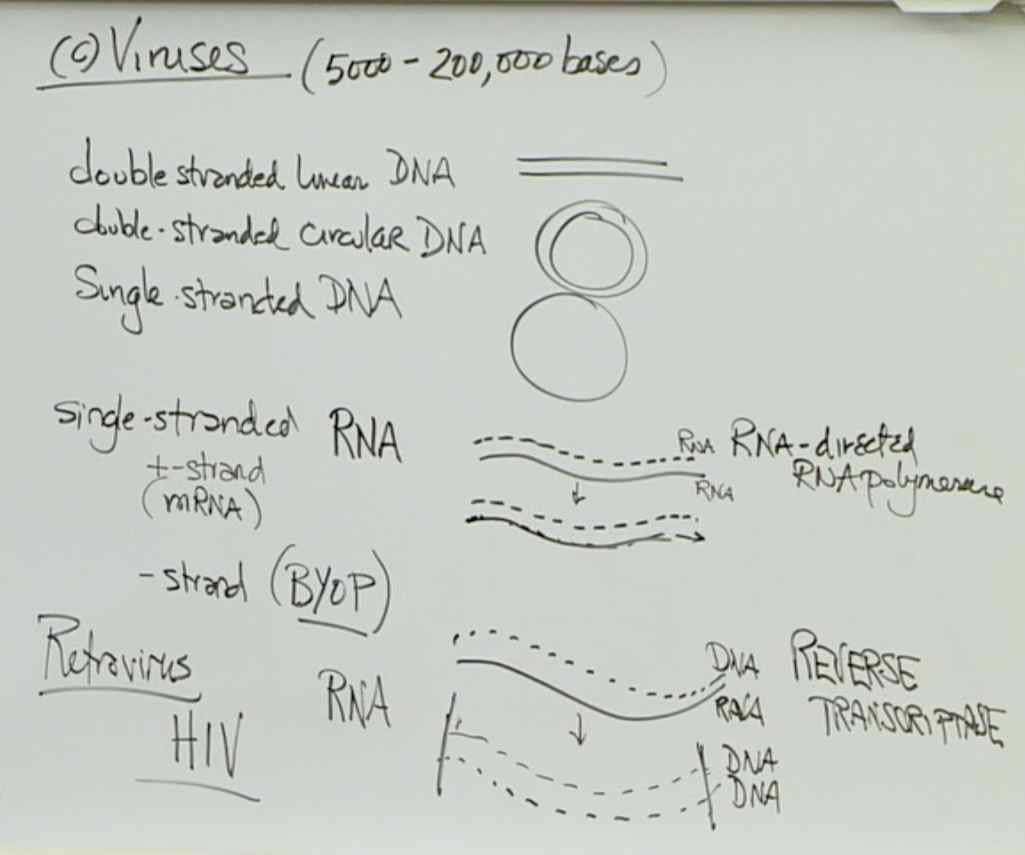 (c) Viruses (5000 - 200,000 bases)
double stranded linear DNA
double-stranded circulaR DNA
Single-stranded DNA
single-stranded RNA
+-strand
(mRNA)
RNA RNA-directed
RNA polymerase
RNA
-strand (BYOP)
Retrovirus
HIV
RNA
DNA REVERSE
RNA TRANSCRIPTASE
DNA
DNA